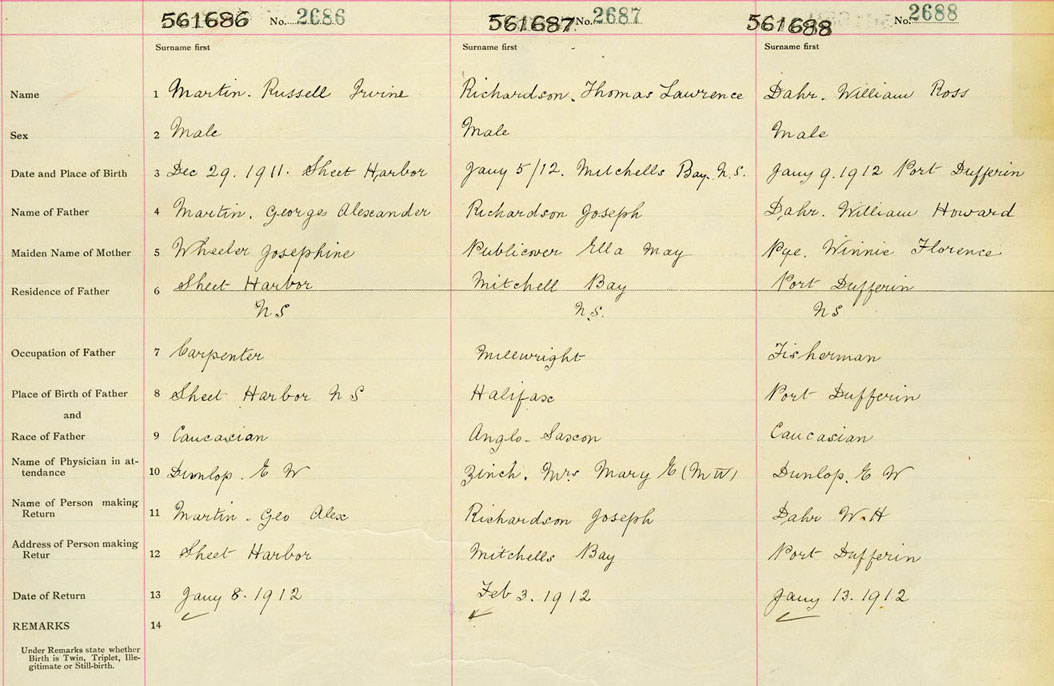 561686 No. 2686 561687 No. 2687 561688 No. 2688
Surname first Surname first Surname first
Name 1 Martin. Russell Irvine Richardson. Thomas Lawrence Dahr. William Ross
Sex 2 Male Male Male
Date and Place of Birth 3 Dec 29. 1911. Sheet Harbor Jany 5/12. Mitchells Bay. N.S. Jany 9. 1912 Port Dufferin
Name of Father 4 Martin. George Alexander Richardson Joseph Dahr. William Howard
Maiden Name of Mother 5 Wheeler Josephine Publicover Ella May Pye. Winnie Florence
Residence of Father 6 Sheet Harbor Mitchell Bay Port Dufferin
N S N.S. N S
Occupation of Father 7 Carpenter Millwright Fisherman
Place of Birth of Father 8 Sheet Harbor N S Halifax Port Dufferin
and
Race of Father 9 Caucasian Anglo-Saxon Caucasian
Name of Physician in at-
tendance 10 Dunlop. E W Zinch. Mrs Mary E (MW) Dunlop. E W
Name of Person making
Return 11 Martin. Geo Alex Richardson Joseph Dahr W. H
Address of Person making
Retur 12 Sheet Harbor Mitchells Bay Port Dufferin
Date of Return 13 Jany 8. 1912 Feb 3. 1912 Jany 13. 1912
REMARKS 14
Under Remarks state whether
Birth is Twin, Triplet, Ille-
gitimate or Still-birth.